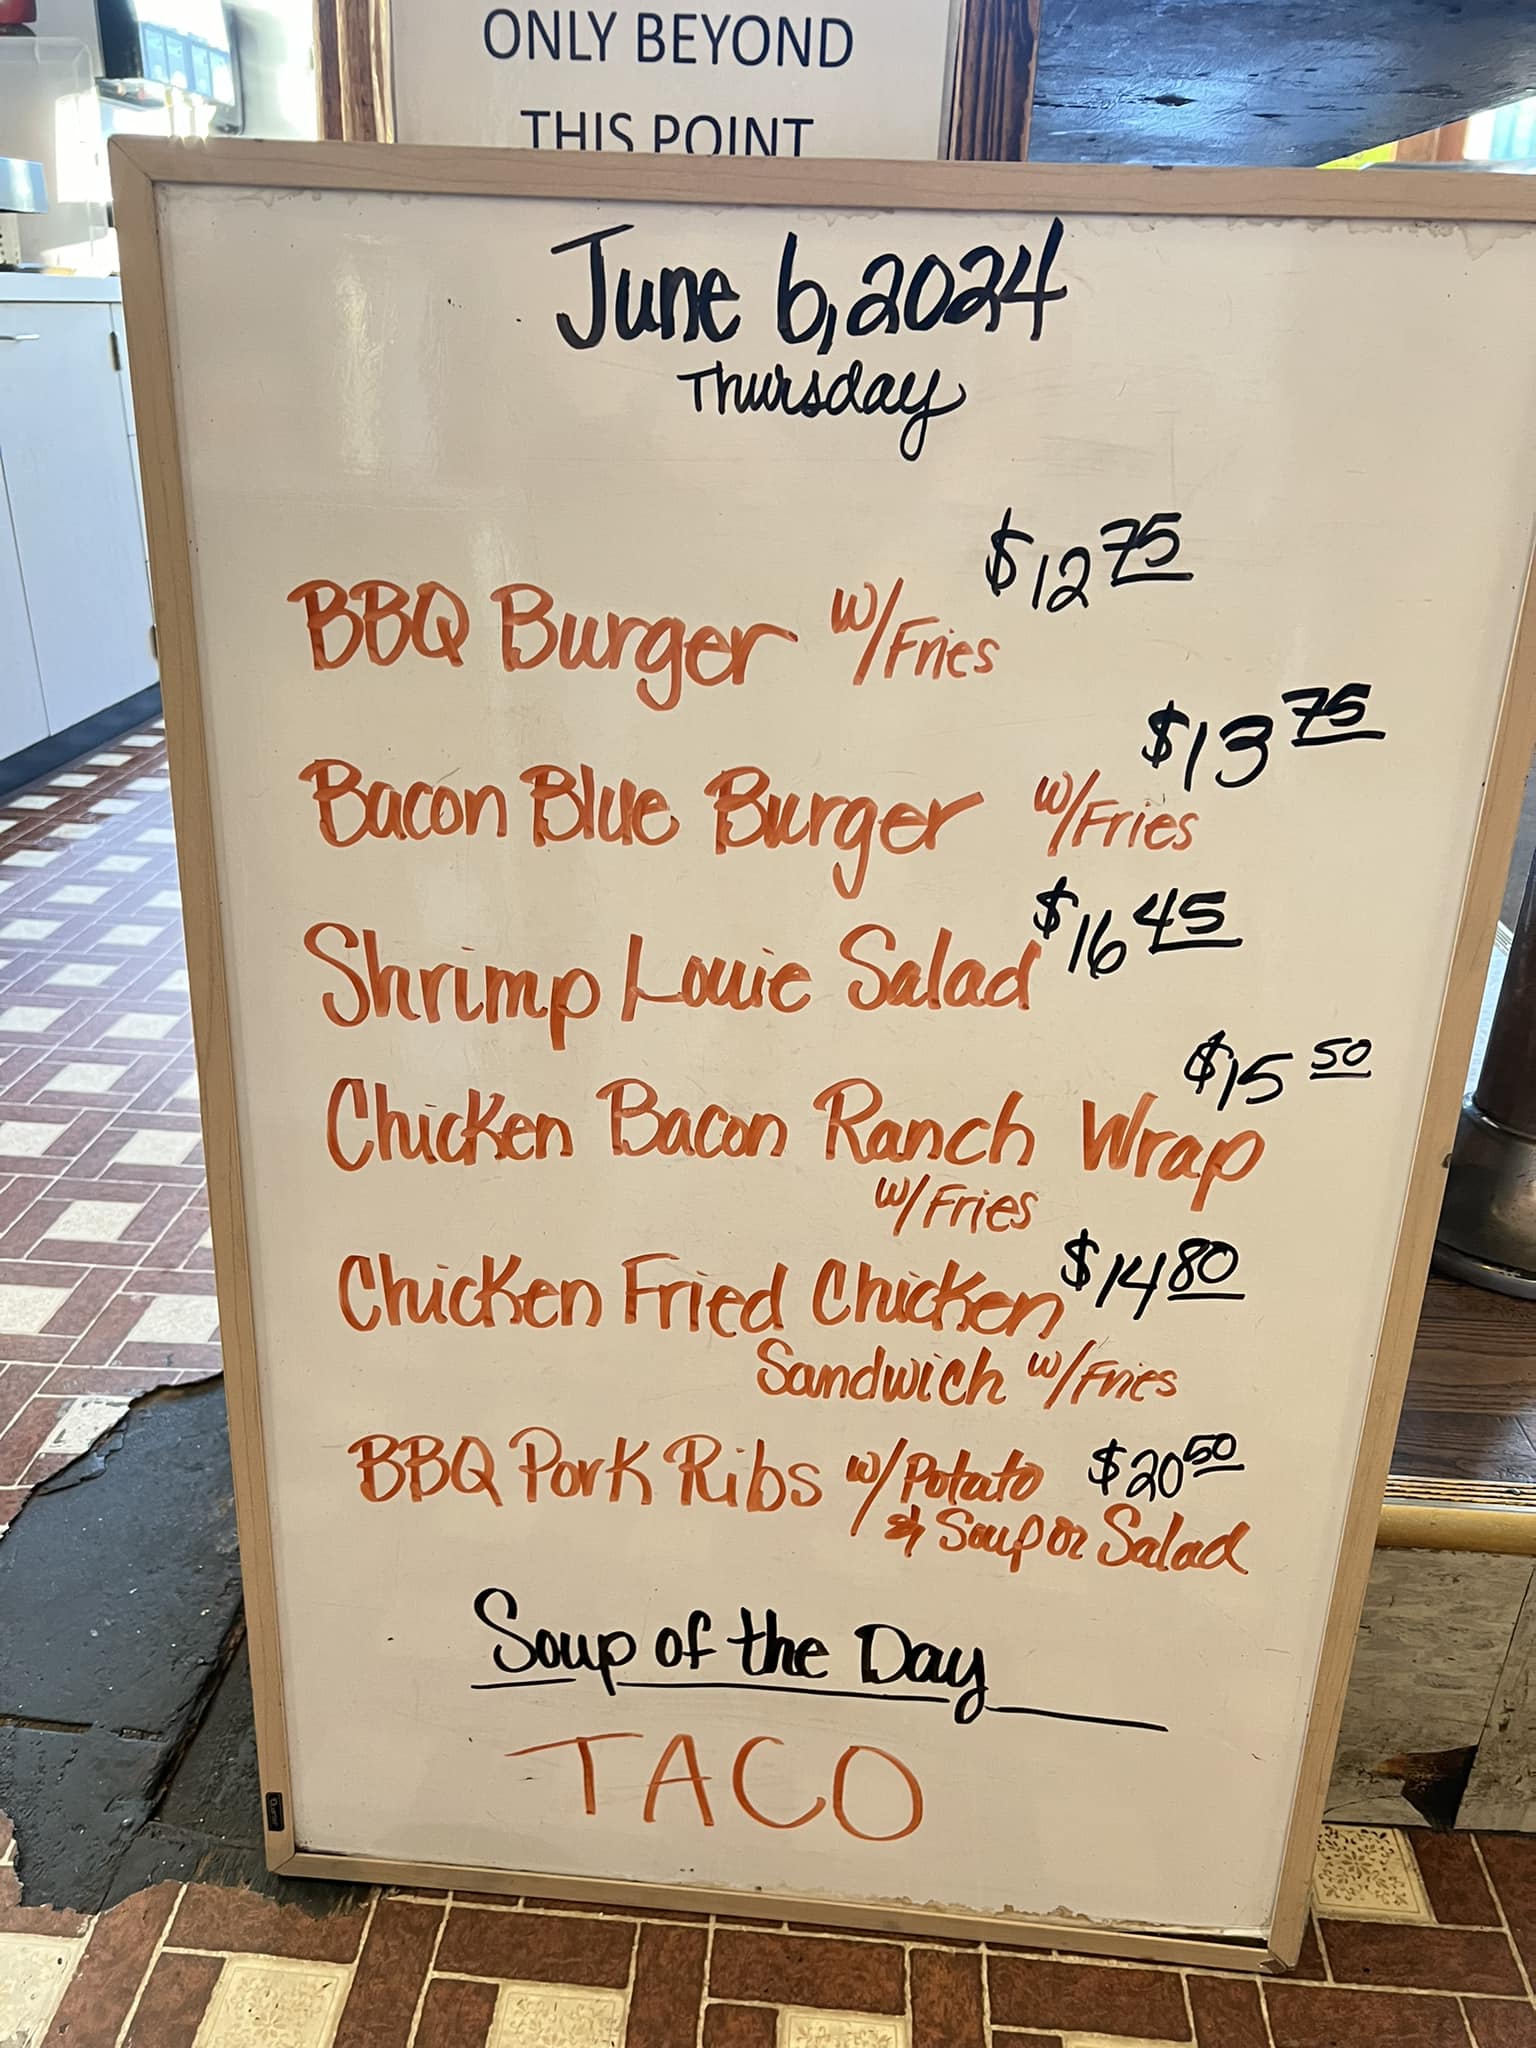 ONLY BEYOND
THIS POINT
June 6, 2024
Thursday
BBQ Burger w/Fries $12 75
Bacon Blue Burger w/Fries $13 75
Shrimp Louie Salad $16 45
Chicken Bacon Ranch Wrap $15 50
w/Fries
Chicken Fried Chicken $14 80
Sandwich w/Fries
BBQ Pork Ribs w/Potato $20 50
& Soup or Salad
Soup of the Day
TACO